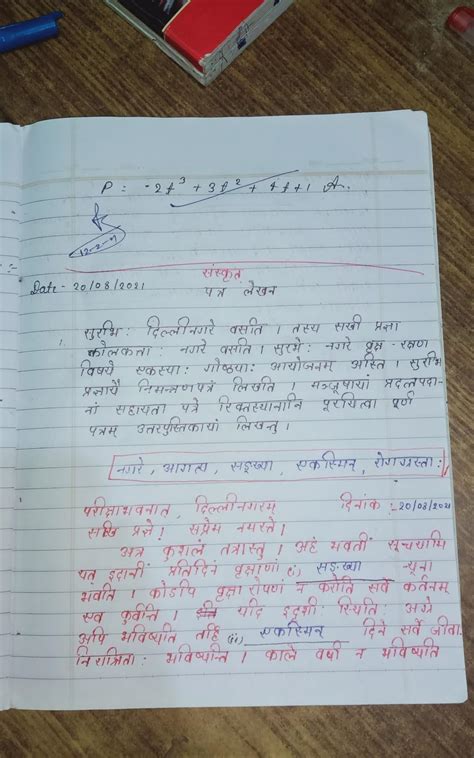 P = -2t³ + 3t² + 4t + 1 A.
12-2-21
संस्कृत
Date - 20/08/2021
पत्र लेखन
सुरभि: दिल्लीनगरे वसति । तस्य सखी प्रज्ञा
कोलकत्ता: नगरे वसति । सुरभे: नगरे वृक्ष - रक्षण
विषये एकस्या: गोष्ठया: आयोजनम् अस्ति । सुरभि
प्रज्ञायै निमन्त्रणपत्रं लिखति । मञ्जूषायां प्रदत्तपदा-
नां सहायता पत्रे रिक्तस्थानानि पूरयित्वा पूर्ण
पत्रम् उत्तरपुस्तिकायां लिखन्तु ।
नगरे , आगत्य , सङ्ख्या , एकस्मिन् , रोगग्रस्ता:
परीक्षाभवनात् , दिल्लीनगरम् दिनांक :-20/08/2021
सखि प्रज्ञे ! सप्रेम नमस्ते !
अत्र कुशलं तत्रास्तु । अहं भवतीं सूचयामि
यत् इदानीं प्रतिदिनं वृक्षाणां (i) सङ्ख्या न्यूना
भवति । कोडपि वृक्षा रोपणं न करोति सर्वे कर्तनम्
एव कुर्वन्ति । यदि इदृशी स्थिति: अग्रे
अपि भविष्यति तर्हि (ii) एकस्मिन् दिने सर्वे जीवा:
निराश्रिता: भविष्यन्ति । काले वर्षा न भविष्यति